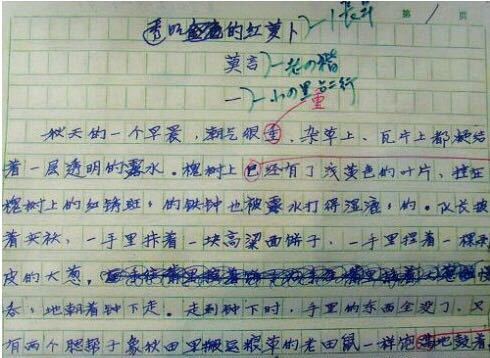 第 1 页
透明的红萝卜
莫言 老四楷
一 小四黑占二行
重
秋天的一个早晨,潮气很重,杂草上、瓦片上都凝结
着一层透明的露水。槐树上已经有了浅黄色的叶片,挂在
槐树上的红锈斑斑的铁钟也被露水打得湿漉漉的。队长披
着夹袄,一手里拤着一块高粱面饼子,一手里捏着一棵剥
皮的大葱,慢
吞吞地朝着钟下走。走到钟下时,手里的东西全没了,只
有两个腮帮子象秋田里搬运粮草的老田鼠一样饱满地鼓着